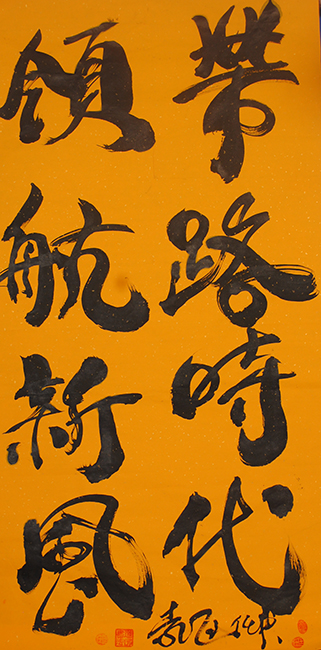 帶路時代
領航新風